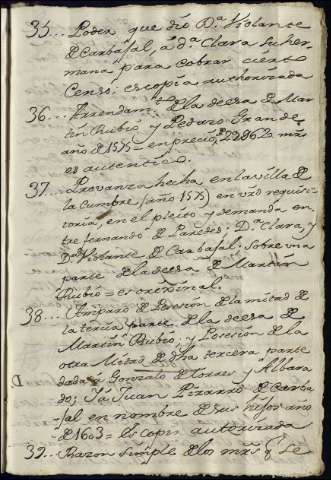 35... Poder que dio D.ª Violante
de Carbajal, a d.ª Clara su her-
mana para cobrar cierto
Censo; es copia authorizada
36... Arrendam.to de la deesa de Mar-
tin Rubio, y Pedazo Grande
año de 1575 = en precio de 2296 mrs
es autentico.
37... Provanza hecha en la villa de
la Cumbre (año 1575) en vrd requisi-
toria, en el pleito y demanda en-
tre fernando de Paredes; D.ª Clara, y
D.ª Violante de Carbajal; sobre una
parte de la deesa de Martin
Rubio = es original.
38... Amparo de Posesion de la mitad de
la tercia parte de la deesa de
Martin Rubio; y Posesion de la
otra Mitad de dha tercera parte
dada a Gonzalo de Torres y Albara-
do; Juan Pizarro de Carba-
jal en nombre de sus hijos año
de 1603 = es copia autorizada
39... Razon simple de los mrs y se